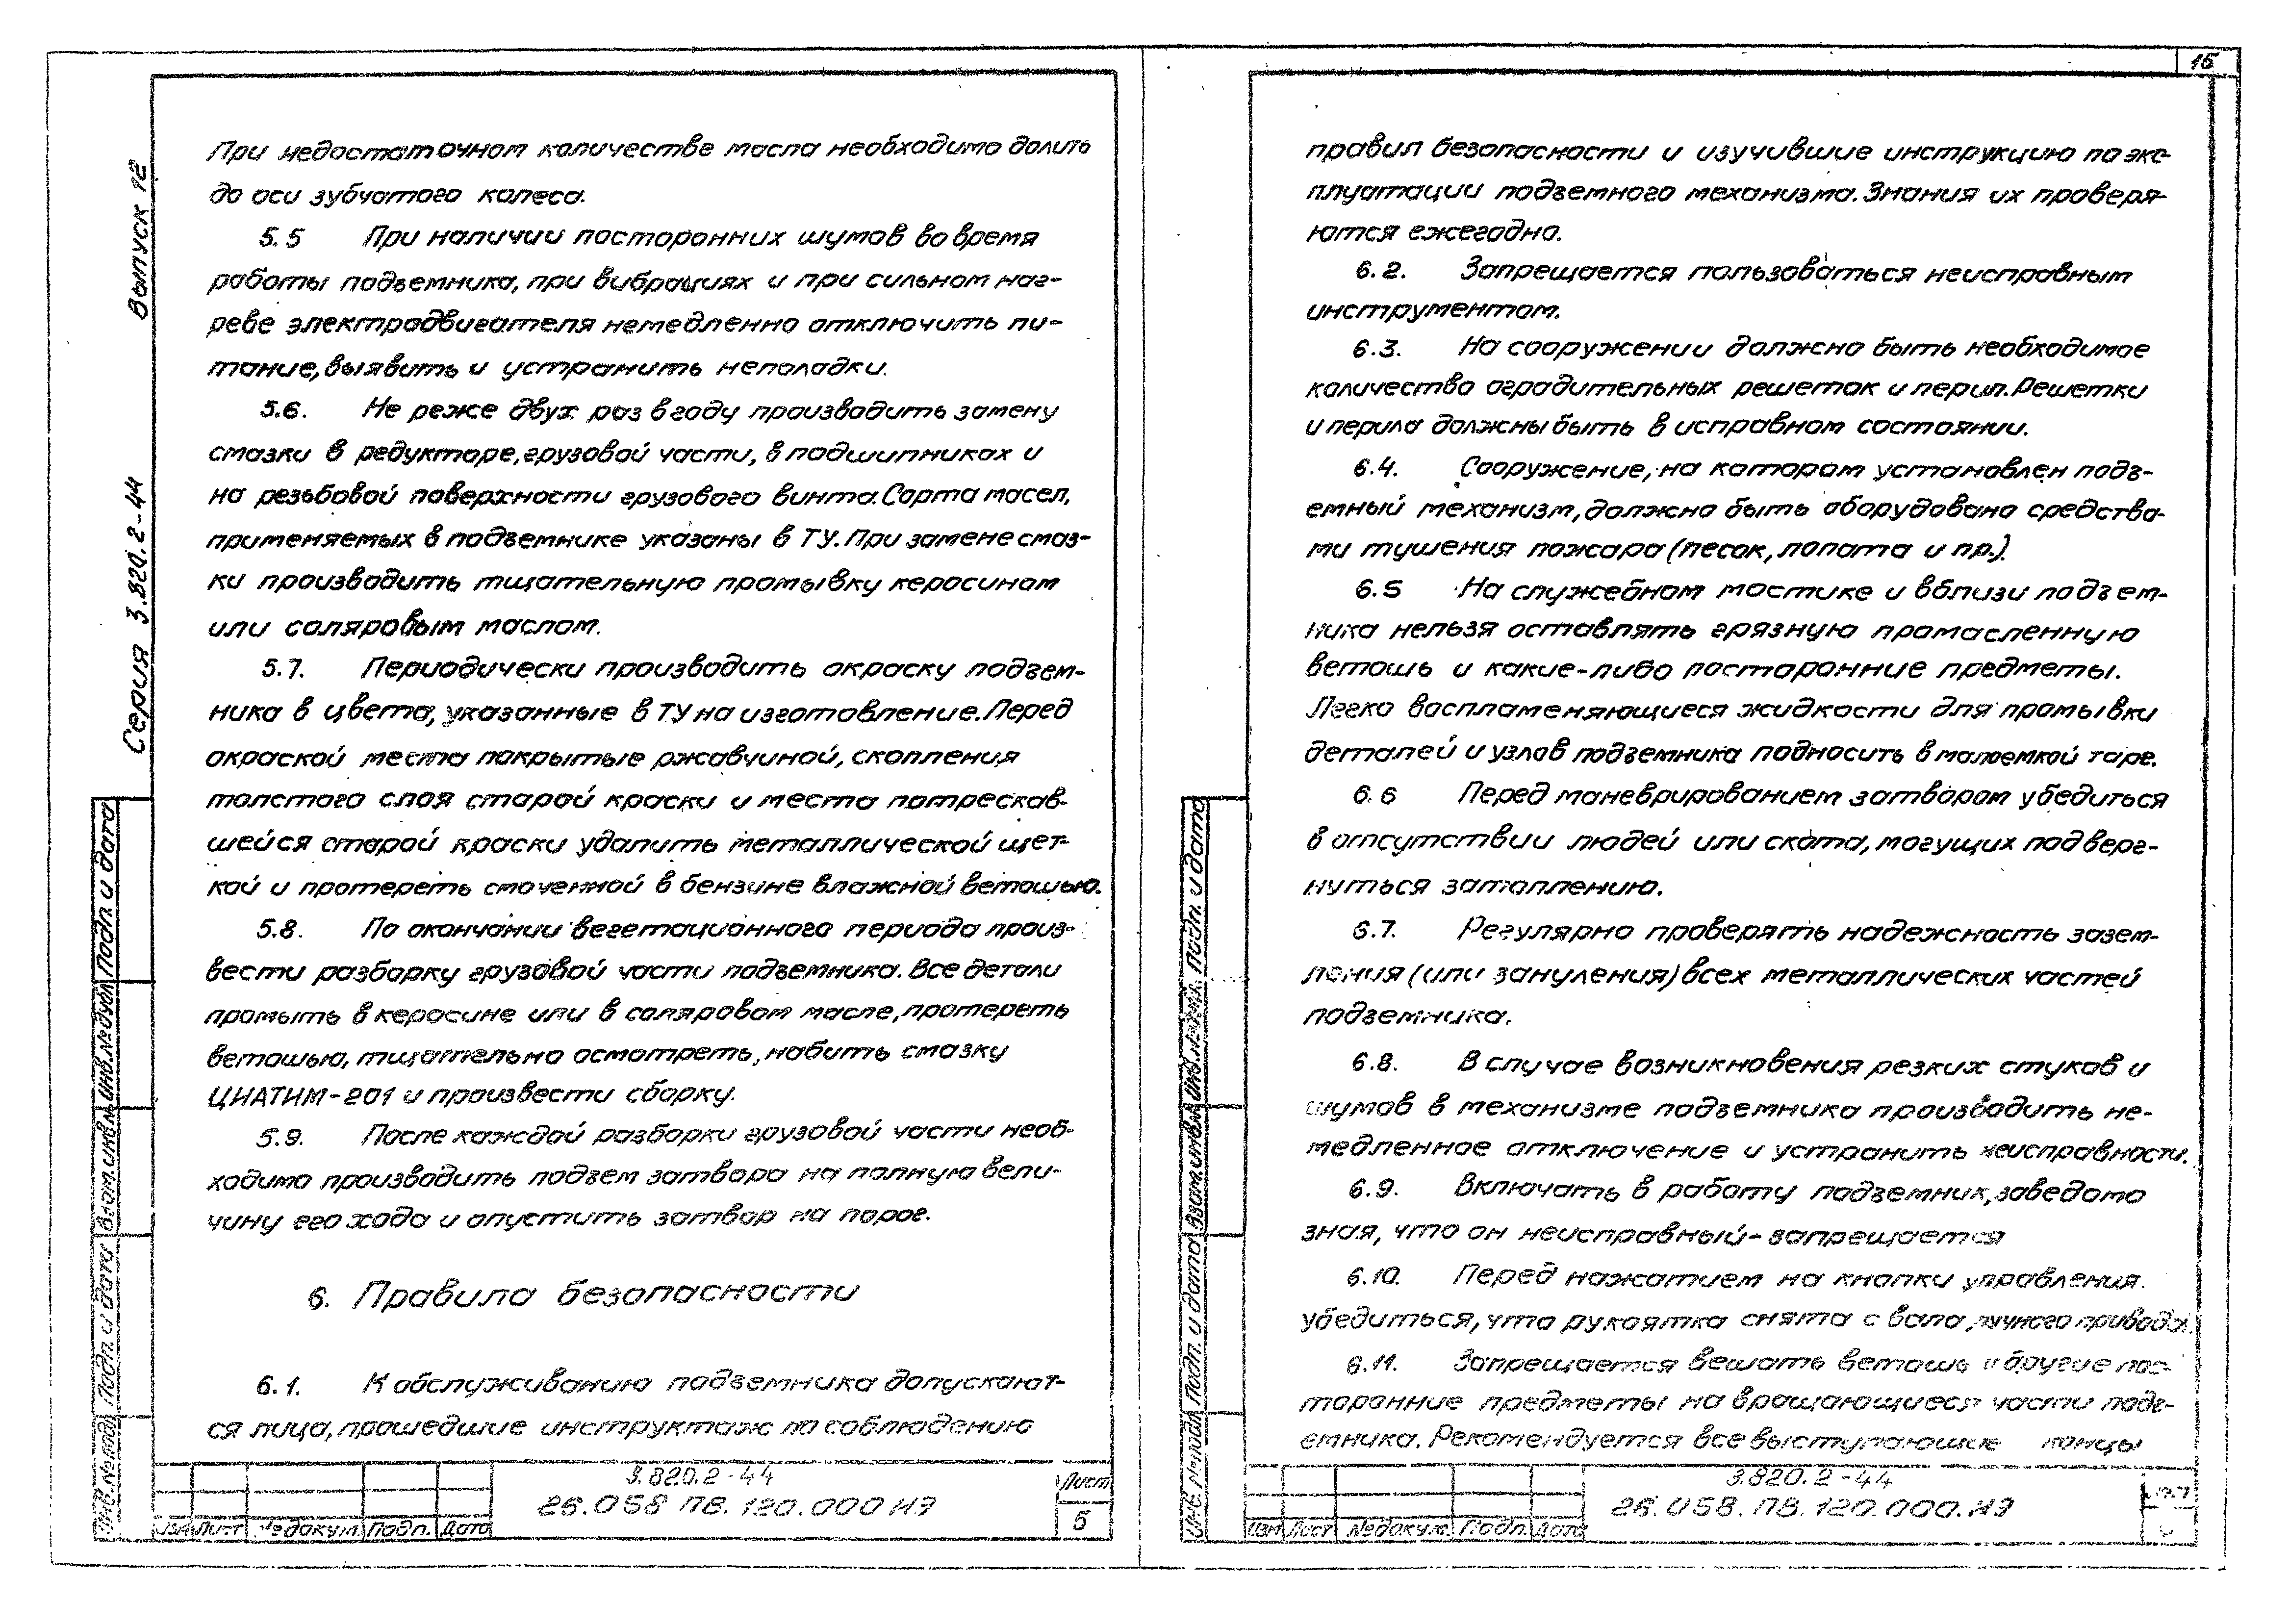 При недостаточном количестве масла необходимо долить
до оси зубчатого колеса.
5.5 При наличии посторонних шумов во время
работы подъемника, при вибрациях и при сильном наг-
реве электродвигателя немедленно отключить пи-
тание, выявить и устранить неполадки.
5.6. Не реже двух раз в году производить замену
смазки в редукторе, грузовой части, в подшипниках и
на резьбовой поверхности грузового винта. Сорта масел,
применяемых в подъемнике указаны в ТУ. При замене смаз-
ки производить тщательную промывку керосином
или соляровым маслом.
5.7. Периодически производить окраску подъем-
ника в цвета, указанные в ТУ на изготовление. Перед
окраской места покрытые ржавчиной, скопления
толстого слоя старой краски и места потрескав-
шейся старой краски удалить металлической щет-
кой и протереть смоченной в бензине влажной ветошью.
5.8. По окончании вегетационного периода произ-
вести разборку грузовой части подъемника. Все детали
промыть в керосине или в соляровом масле, протереть
ветошью, тщательно осмотреть, набить смазку
ЦИАТИМ-201 и произвести сборку.
5.9. После каждой разборки грузовой части необ-
ходимо производить подъем затвора на полную вели-
чину его хода и опустить затвор на порог.
6. Правила безопасности
6.1. К обслуживанию подъемника допускают-
ся лица, прошедшие инструктаж по соблюдению
3.820.2-44
26.058 ПВ.120.000 ИЭ
Лист
5
Изм Лист № докум. Подп. Дата
Серия 3.820.2-44 Выпуск 12
Инв. № подл. Подп. и дата Взам. инв. № Инв. № дубл. Подп. и дата
15
правил безопасности и изучившие инструкцию по экс-
плуатации подъемного механизма. Знания их проверя-
ются ежегодно.
6.2. Запрещается пользоваться неисправным
инструментом.
6.3. На сооружении должно быть необходимое
количество оградительных решеток и перил. Решетки
и перила должны быть в исправном состоянии.
6.4. Сооружение, на котором установлен подъ-
емный механизм, должно быть оборудовано средства-
ми тушения пожара (песок, лопата и пр.).
6.5 На служебном мостике и вблизи подъем-
ника нельзя оставлять грязную промасленную
ветошь и какие-либо посторонние предметы.
Легко воспламеняющиеся жидкости для промывки
деталей и узлов подъемника подносить в малоемкой таре.
6.6 Перед маневрированием затвором убедиться
в отсутствии людей или скота, могущих подверг-
нуться затоплению.
6.7. Регулярно проверять надежность зазем-
ления (или зануления) всех металлических частей
подъемника.
6.8. В случае возникновения резких стуков и
шумов в механизме подъемника производить не-
медленное отключение и устранить неисправности.
6.9. Включать в работу подъемник, заведомо
зная, что он неисправный - запрещается
6.10. Перед нажатием на кнопки управления
убедиться, что рукоятка снята с вала ручного привода.
6.11. Запрещается вешать ветошь и другие пос-
торонние предметы на вращающиеся части подъ-
емника. Рекомендуется все выступающие концы
3.820.2-44
26.058.ПВ.120.000.ИЭ
Изм Лист № докум. Подп. Дата
Инв. № подл. Подп. и дата Взам. инв. № Инв. № дубл. Подп. и дата